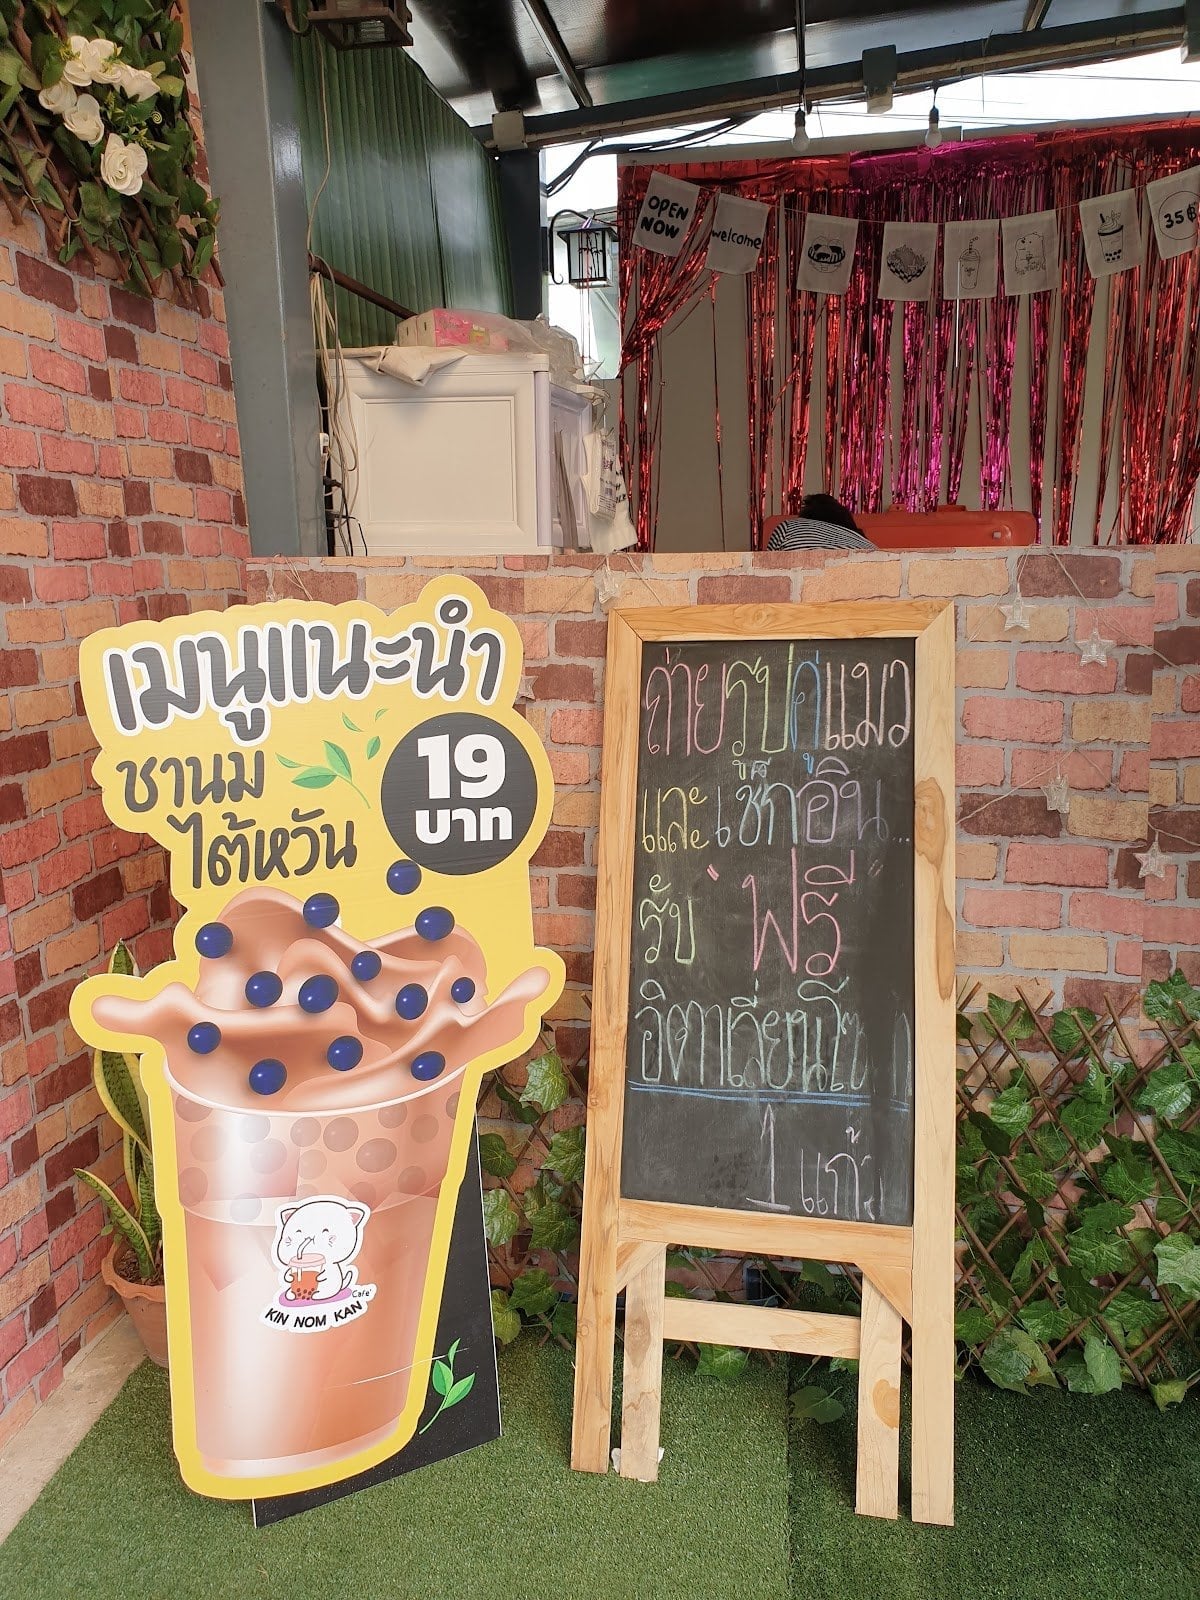 OPEN
NOW
welcome
35฿
เมนูแนะนำ
ชานม
ไต้หวัน
19
บาท
Cafe'
KIN NOM KAN
ถ่ายรูปคู่แมว
และเช็กอิน...
รับ "ฟรี
อิตาเลี่ยนโซ
1 แก้ว